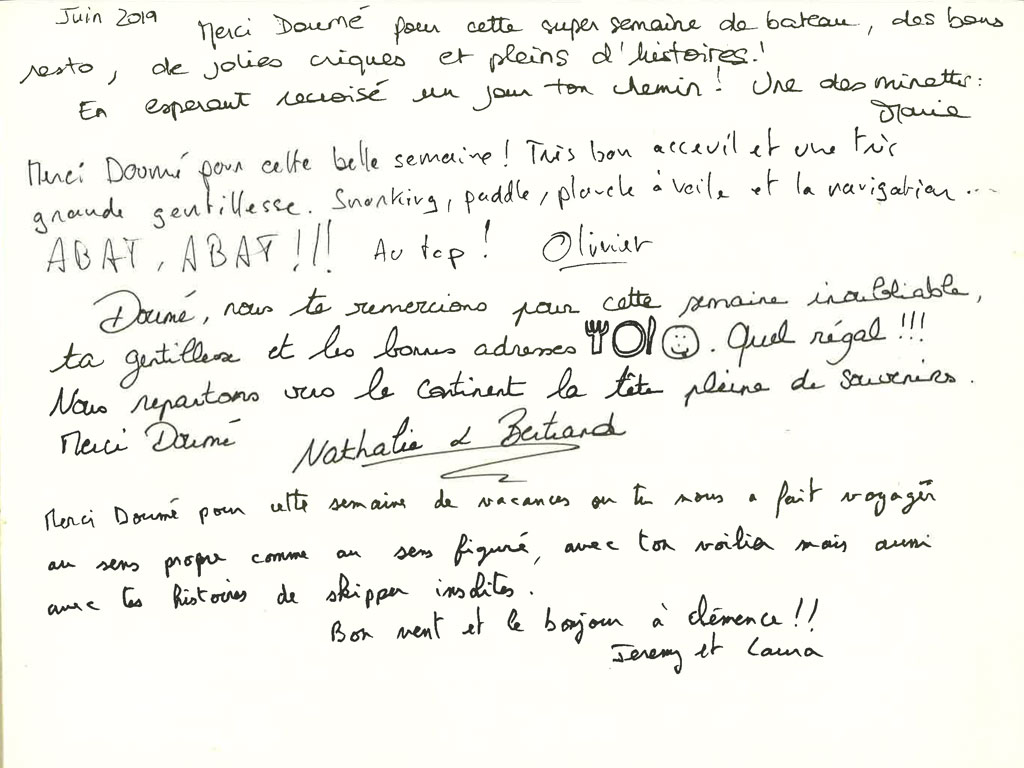 Juin 2019 Merci Doumé pour cette super semaine de bateau, des bons
resto, de jolies criques et pleins d'histoires!
En esperant recroisé un jour ton chemin! Une des minettes:
Marie
Merci Doumé pour cette belle semaine! Très bon acceuil et une très
grande gentillesse. Snorking, paddle, planche à voile et la navigation...
ABAT, ABAT!!! Au top! Olivier
Doumé, nous te remercions pour cette semaine inoubliable,
ta gentillesse et les bonnes adresses. Quel régal!!!
Nous repartons vers le continent la tête pleine de souvenirs.
Merci Doumé Nathalie & Bertrand
Merci Doumé pour cette semaine de vacances ou tu nous a fait voyager
au sens propre comme au sens figuré, avec ton voilier mais aussi
avec tes histoires de skipper insolites.
Bon vent et le bonjour à clémence!!
Jeremy et Laura